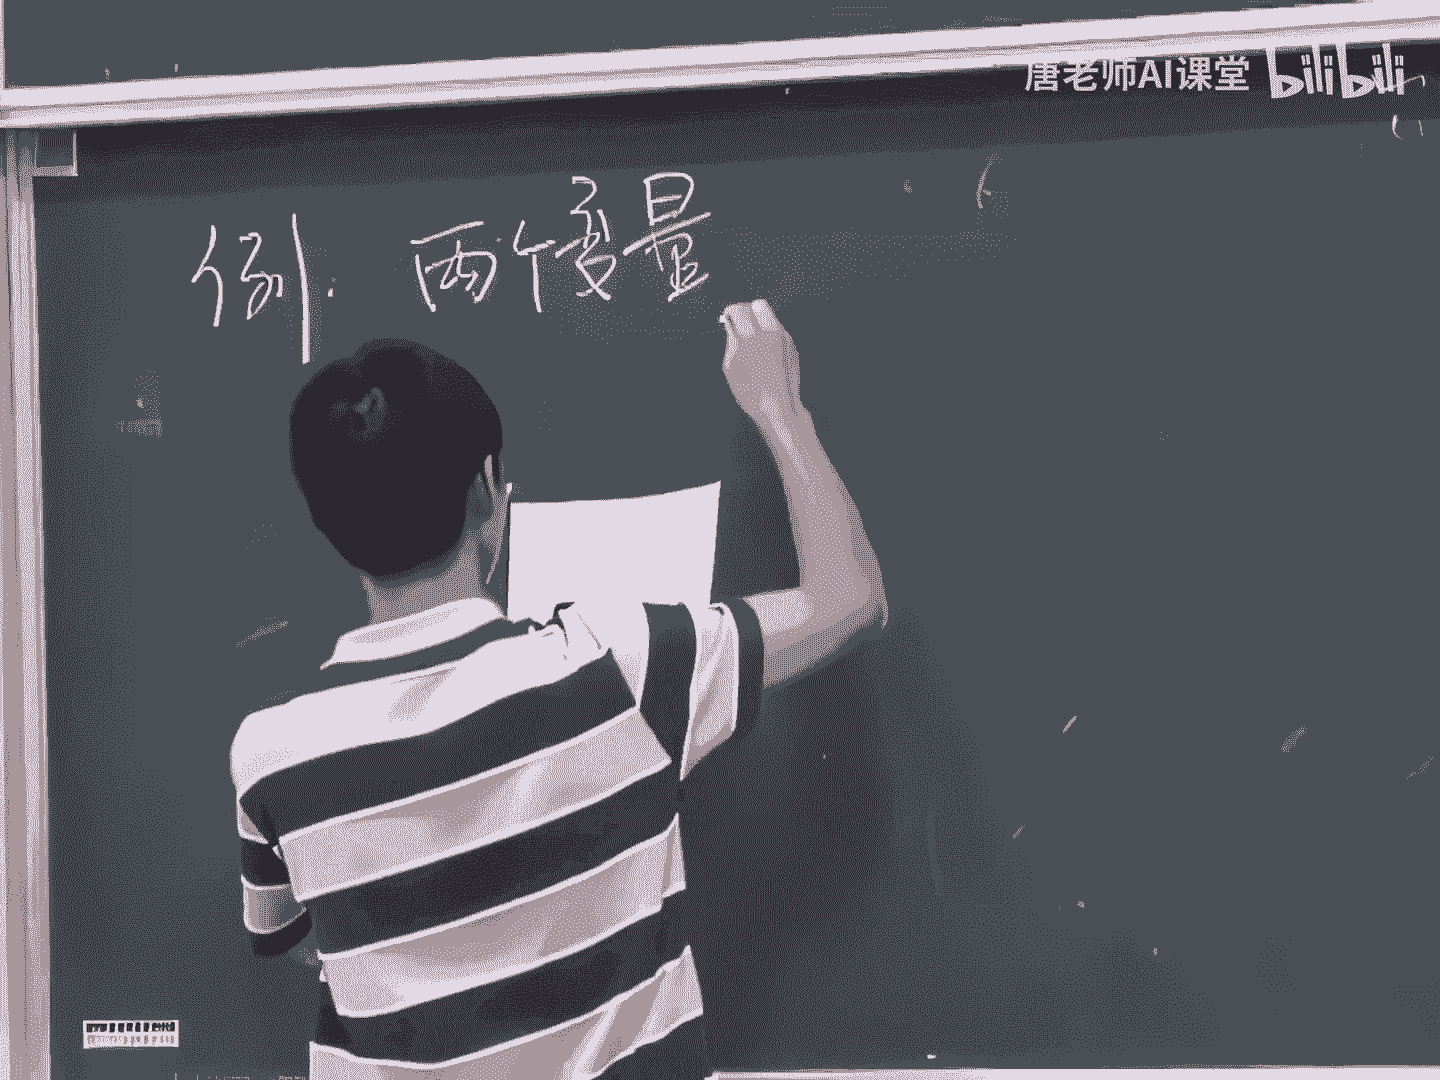 唐老师AI课堂 bilibili
例: 两个变量